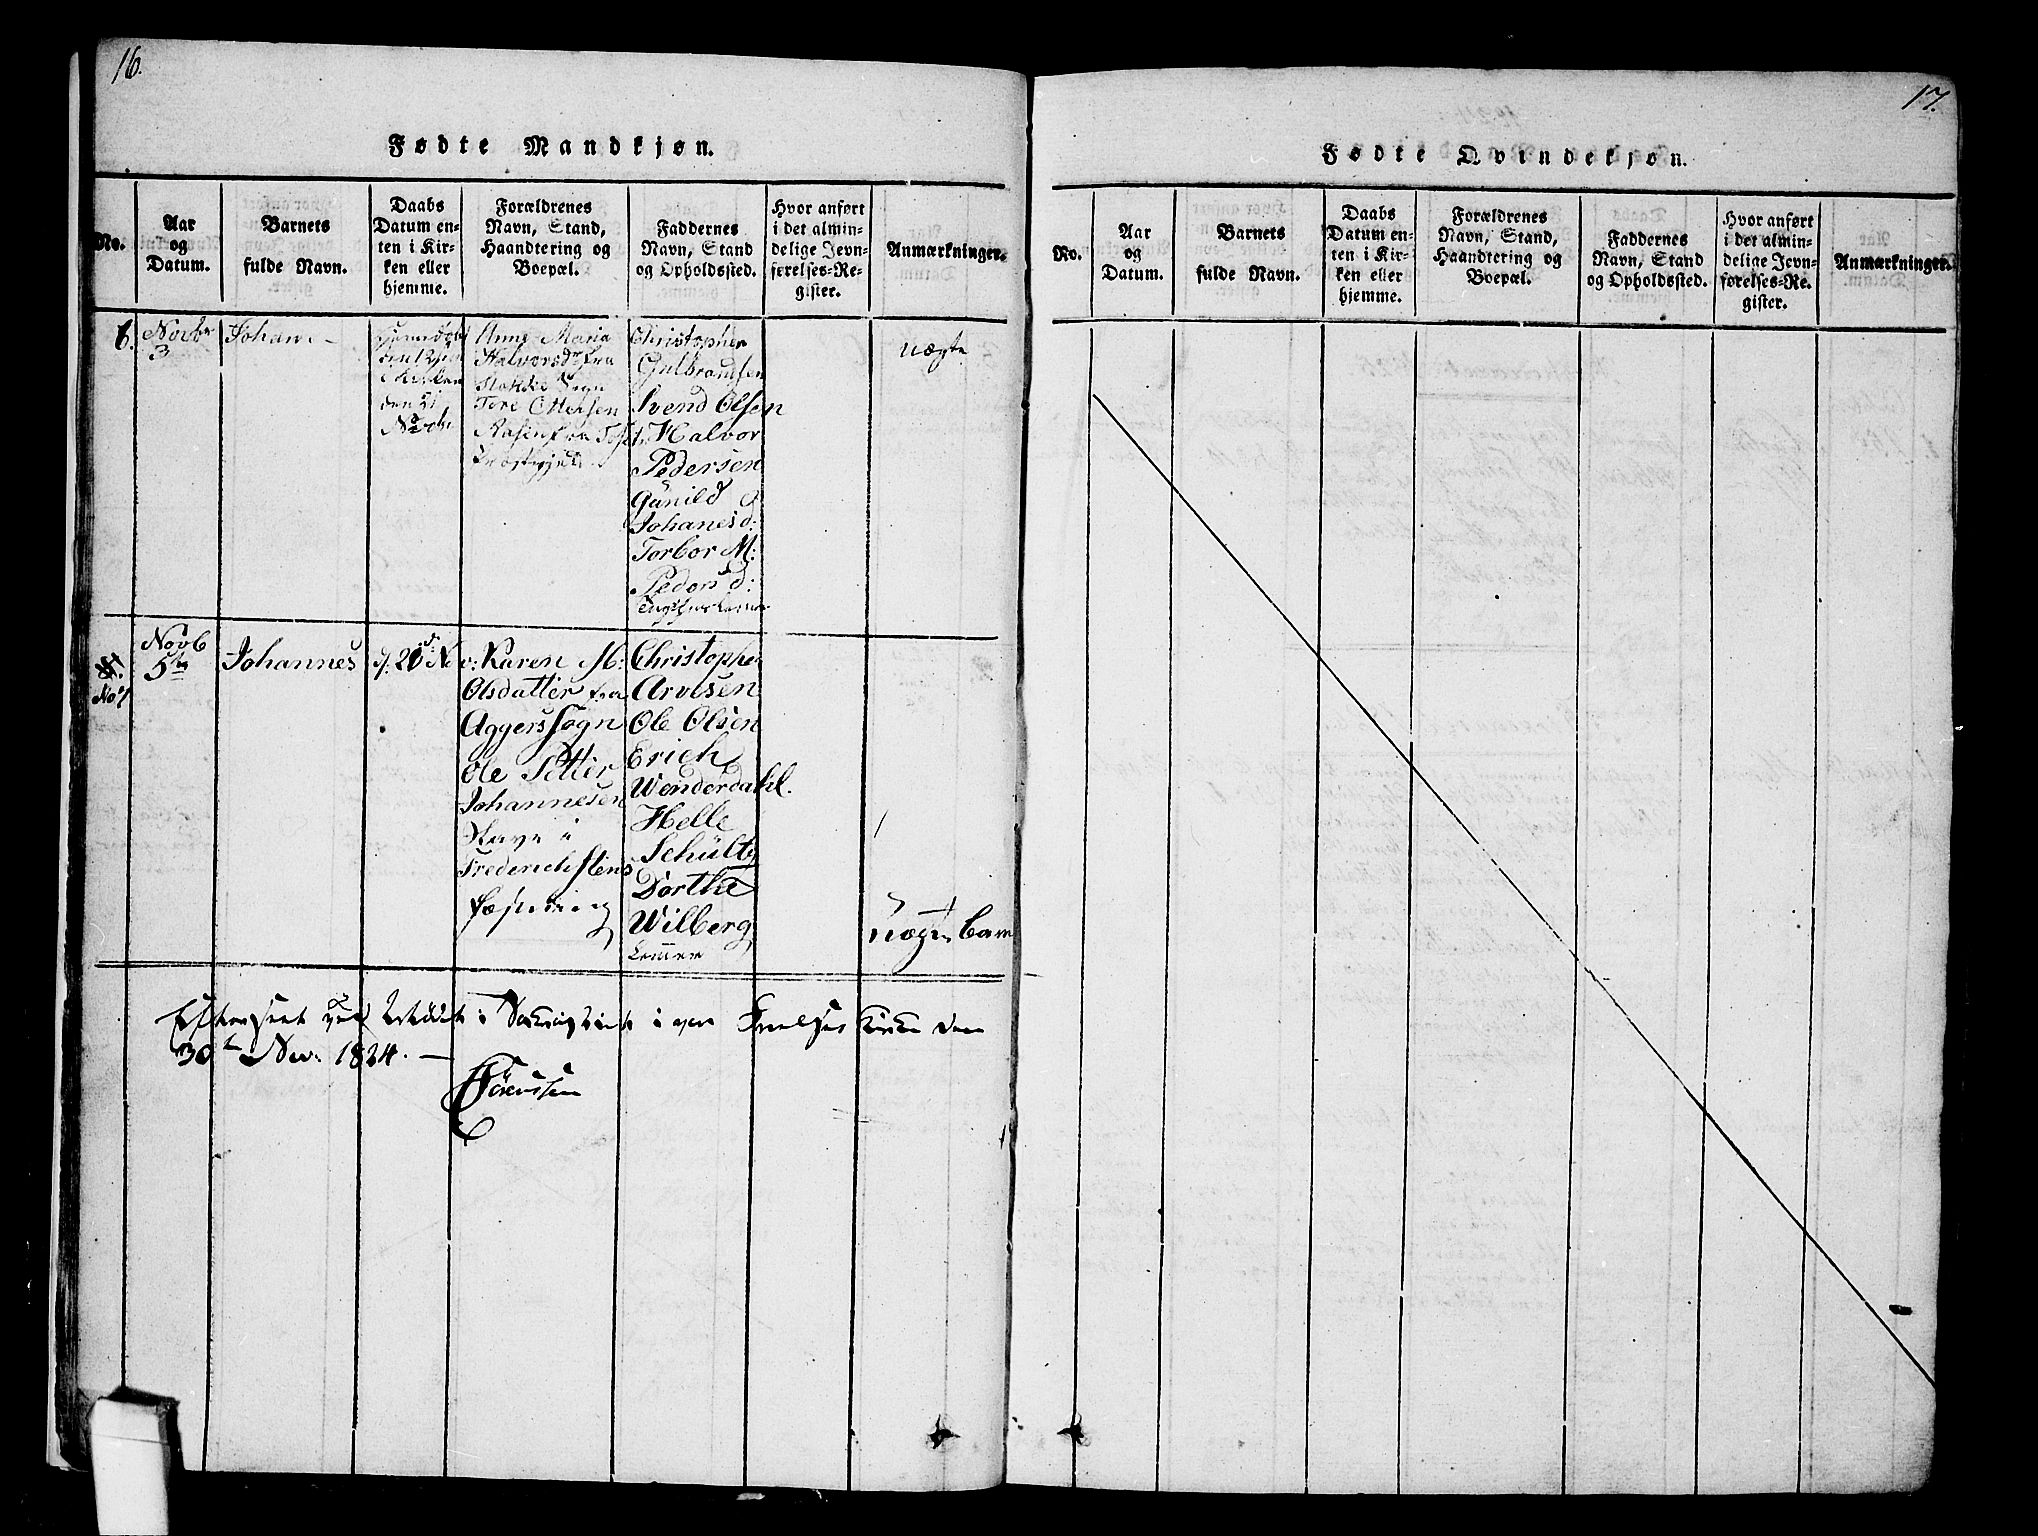 16.
Fødte Mandkjøn.
No.
Aar
og
Datum.
Barnets
fulde Navn.
Daabs
Datum en-
ten i Kir-
ken eller
hjemme.
Forældrenes
Navn, Stand,
Haandtering og
Boepæl.
Faddernes
Navn, Stand
og Opholdssted.
Hvor anført
i det almin-
delige Jevn-
førelses-Re-
gister.
Anmærkninger.
6.
Novbr
3
Johan
i Kirken
den 21
Novbr
Anne Maria
Halvorsdr fra
Tore Ottersen
Christopher
Gulbrandsen
Svend Olsen
Halvor
Pedersen
Gunild
Johanesd:
Torbor M:
Pedersd:
uægte
No 7
Novb
5te
Johannes
d. 21 Nov:
Karen M:
Olsdatter fra
Aggers Sogn
Ole Petter
Johannesen
Slave i
Frederichstens
Fæstning
Christopher
Arvesen
Ole Olsen
Erich
Wenderdahl.
Helle
Schültz
Dorthe
Wilberg
Lemmer
uægte Barn
Kirke den
30te Nov: 1824.
Sörenssen
17.
Fødte Qvindekjøn.
No.
Aar
og
Datum.
Barnets
fulde Navn.
Daabs
Datum en-
ten i Kir-
ken eller
hjemme.
Forældrenes
Navn, Stand,
Haandtering og
Boepæl.
Faddernes
Navn, Stand
og Opholdssted.
Hvor anført
i det almin-
delige Jevn-
førelses-Re-
gister.
Anmærkninger.